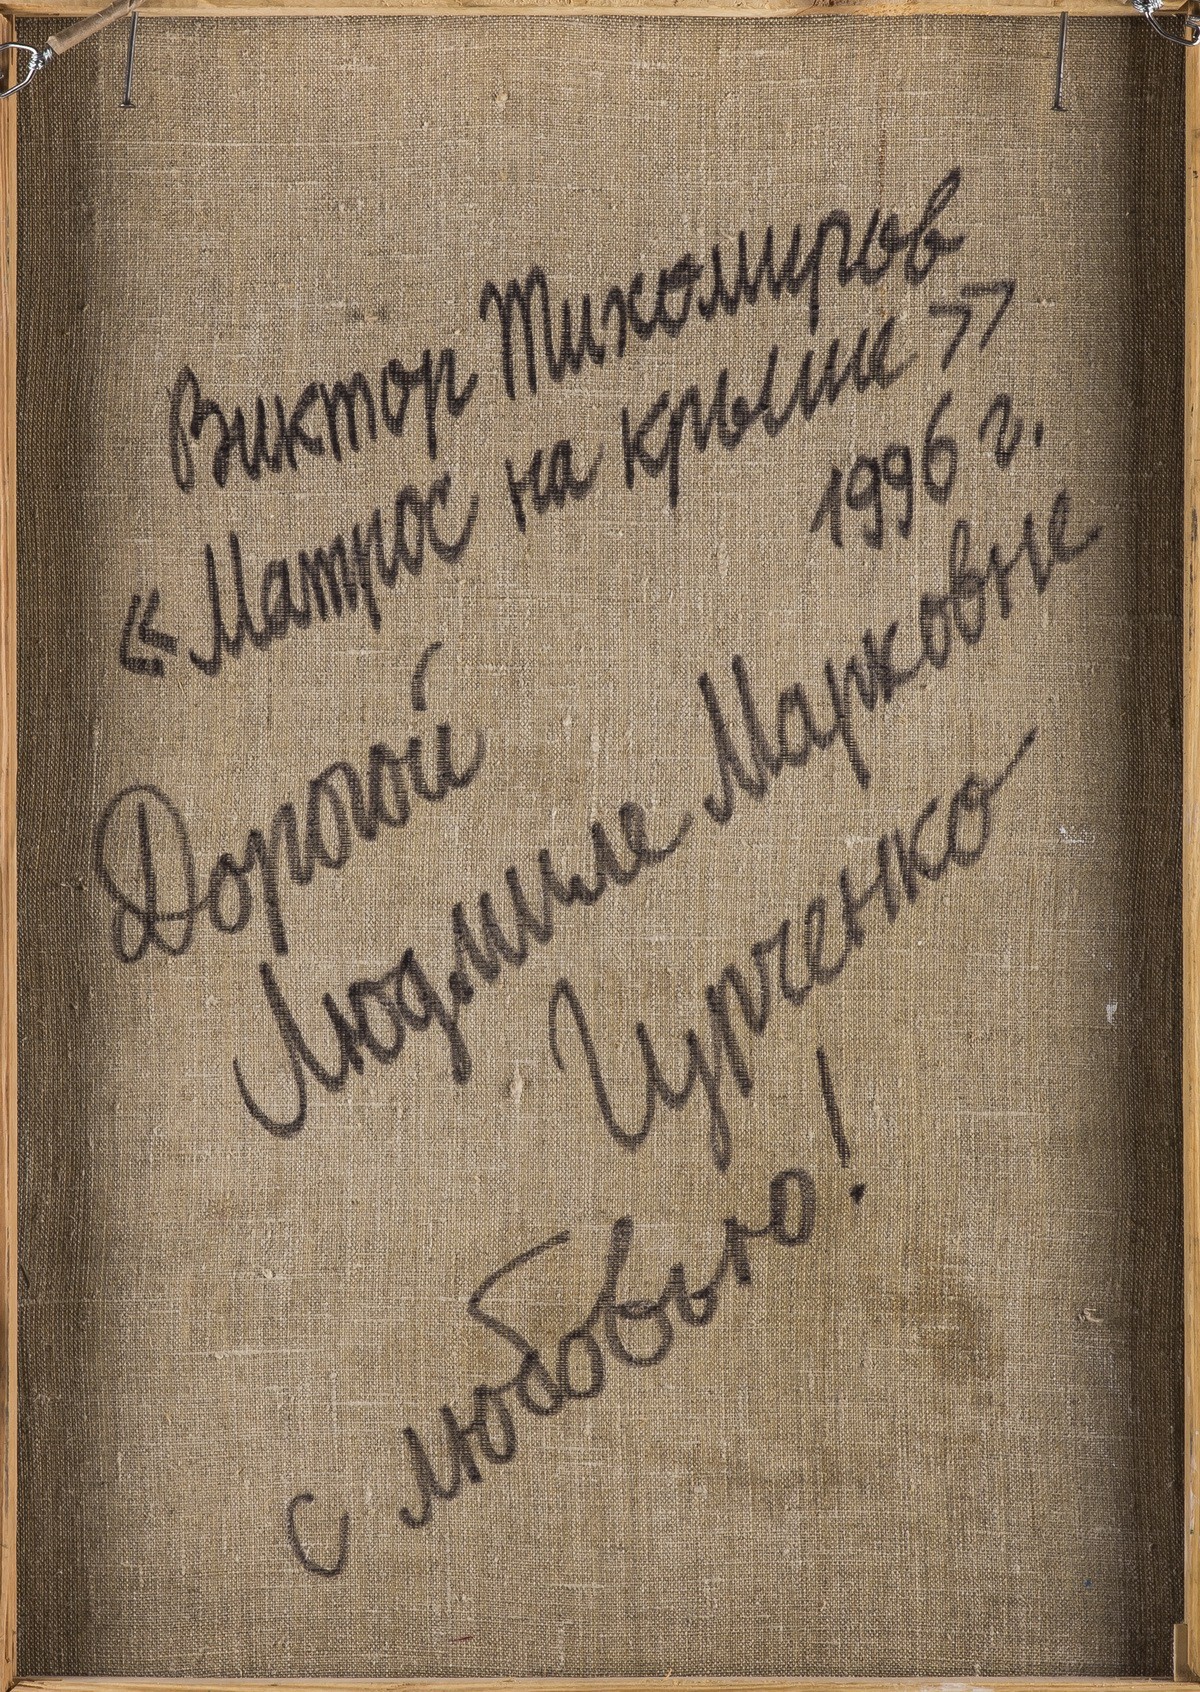 Виктор Тихомиров
«Матрос на крыше»
1996 г.
Дорогой
Людмиле Марковне
Гурченко
с любовью!